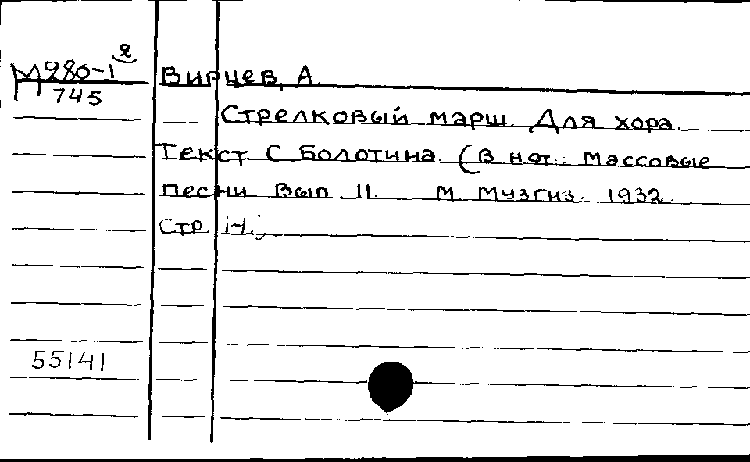 М980-1 я
745
Вирцев, А
Стрелковый марш. Для хора.
Текст С Болотина. (В нот.: Массовые
песни Вып 11. М. Музгиз. 1932.
Стр
55141